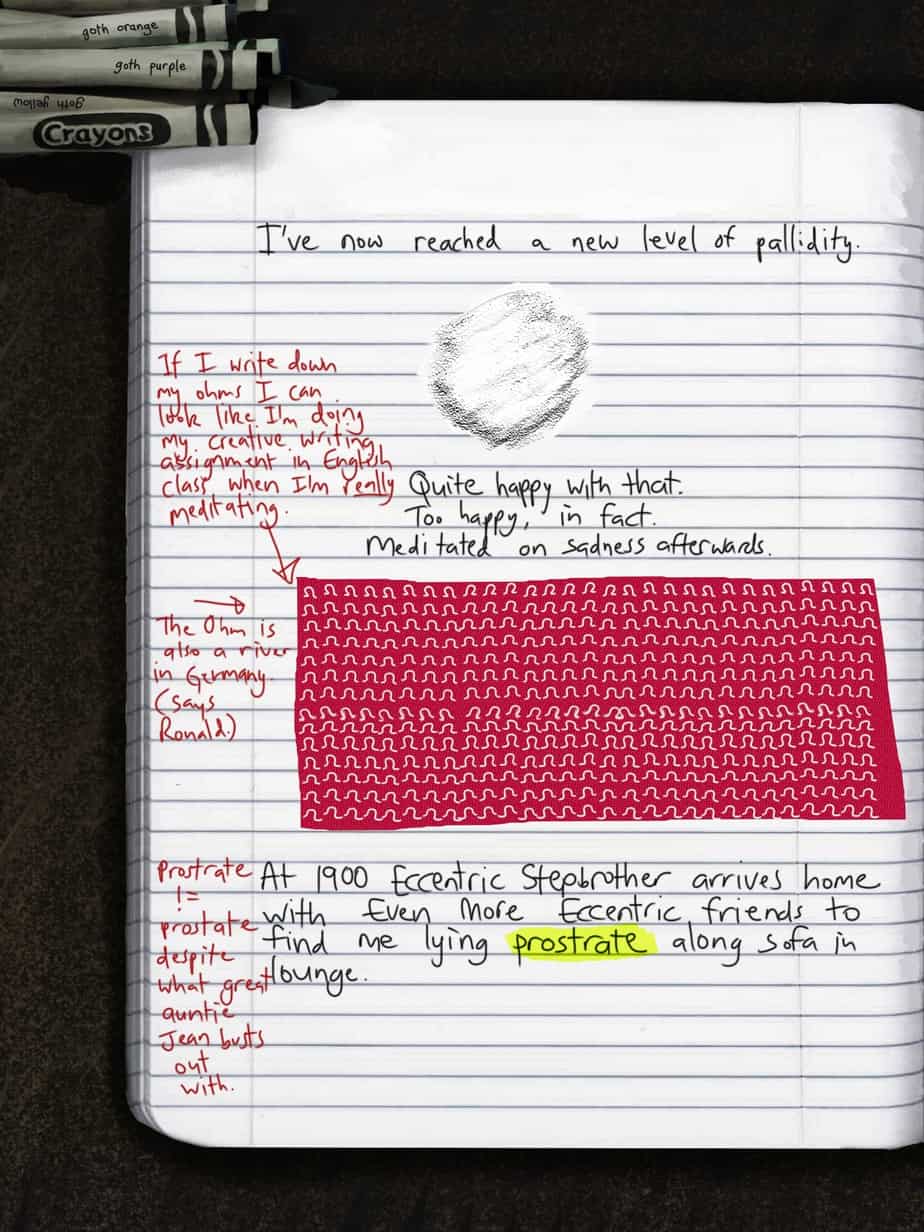 goth orange
goth purple
goth yellow
Crayons
I've now reached a new level of pallidity.
If I write down
my ohms I can
look like I'm doing
my creative writing
assignment in English
class when I'm really
meditating.
Quite happy with that.
Too happy, in fact.
Meditated on sadness afterwards.
The Ohm is
also a river
in Germany.
(says
Ronald.)
Prostrate
!=
prostate
despite
what great
auntie
Jean busts
out
with.
At 1900 Eccentric Stepbrother arrives home
with Even More Eccentric friends to
find me lying prostrate along sofa in
lounge.